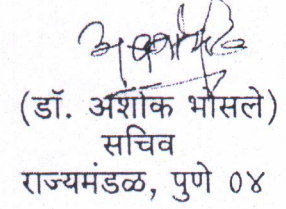 (डॉ. अशोक भोसले)
सचिव
राज्यमंडळ, पुणे ०४